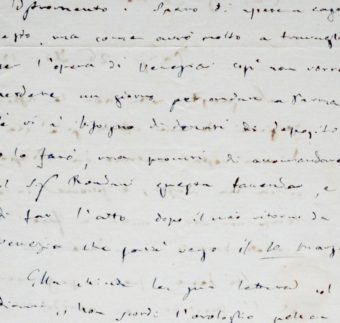 Istromento. Spero di essere cag
esto, ma come avrò molto a travagli
per l'opera di Venezia così non vorre
perdere un giorno per andare a Parma
Se vi è bisogno di denari di deposito
o lo farò, ma procuri di accomodare
al Sig Bondani questa facenda, e
di far l'atto dopo il mio ritorno da
Venezia che sarà verso il 10 Marzo
chiude la sua lettera col
dirmi, non scordi l'orologio